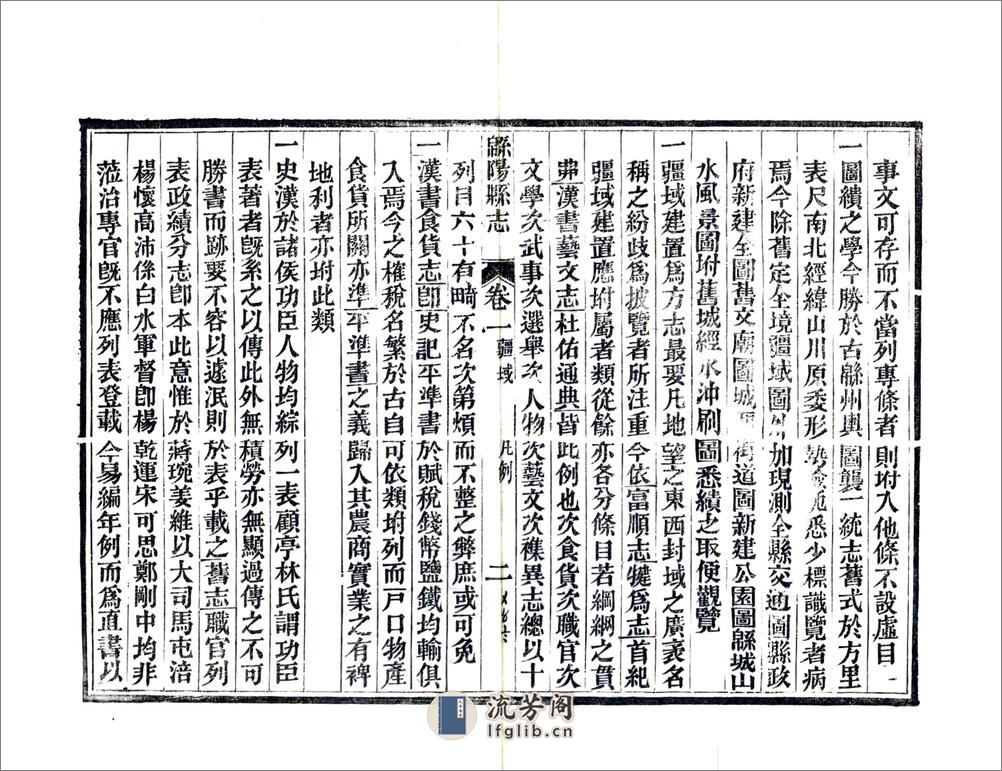 事文可存而不當列專條者則坿入他條不設虛目
一圖繢之學今勝於古緜州輿圖襲一統志舊式於方里
表尺南北經緯山川原委形勢 悉少標識覽者病
焉今除舊定全境疆域圖外加現測全縣交通圖縣政
府新建全圖舊文廟圖城 街道圖新建公園圖緜城山
水風景圖坿舊城經水沖刷圖悉繢之取便觀覽
一疆域建置爲方志最要凡地望之東西封域之廣袤名
稱之紛歧爲披覽者所注重今依富順志犍爲志首紀
疆域建置應坿屬者類從餘亦各分條目若綱綱之貫
弗漢書藝文志杜佑通典皆此例也次食貨次職官次
文學次武事次選舉次人物次藝文次襍異志總以十
緜陽縣志 卷一 疆域 凡例 二
列目六十有畸不名次第煩而不整之弊庶或可免
一漢書食貨志卽史記平準書於賦稅錢幣鹽鐵均輸俱
入焉今之榷稅名繁於古自可依類坿列而戸口物產
食貨所關亦準平準書之義歸入其農商實業之有裨
地利者亦坿此類
一史漢於諸侯功臣人物均綜列一表顧亭林氏謂功臣
表著者旣系之以傳此外無積勞亦無顯過傳之不可
勝書而跡要不容以遽泯則於表乎載之舊志職官列
表政績分志卽本此意惟於蔣琬姜維以大司馬屯涪
楊懷高沛係白水軍督卽楊乾運宋可思鄭剛中均非
蒞治專官旣不應列表登載今易編年例而爲直書以
流芳阁
lfglib.cn